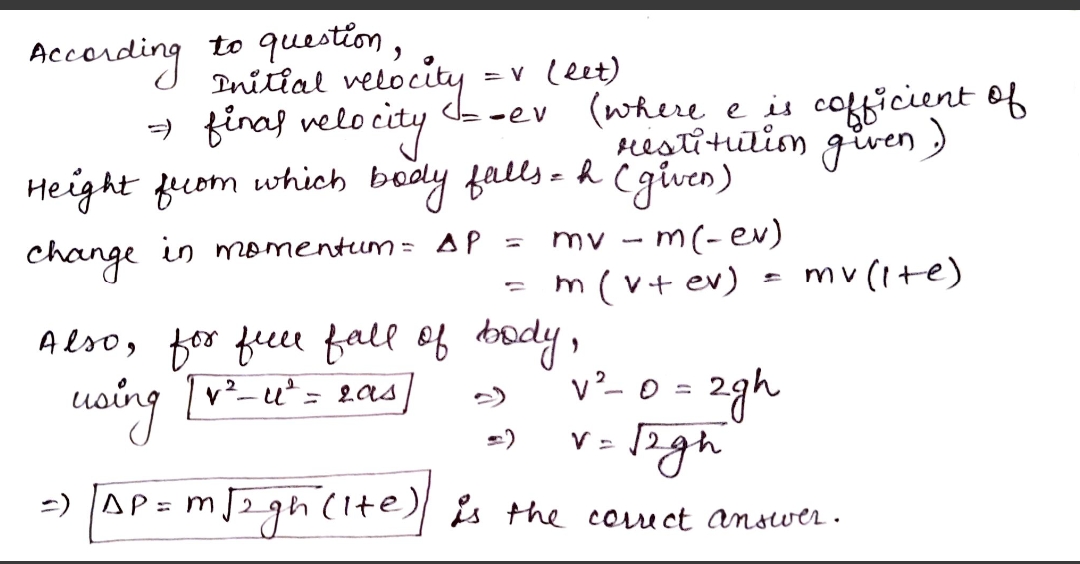 According to question,
Initial velocity = v (let)
⇒ final velocity = -ev (where e is cofficient of
restitution given)
Height from which body falls = h (given)
change in momentum = ΔP = mv - m(-ev)
= m(v + ev) = mv(1+e)
Also, for free fall of body,
using v² - u² = 2as ⇒ v² - 0 = 2gh
⇒ v = √2gh
⇒ ΔP = m√2gh (1+e) is the correct answer.